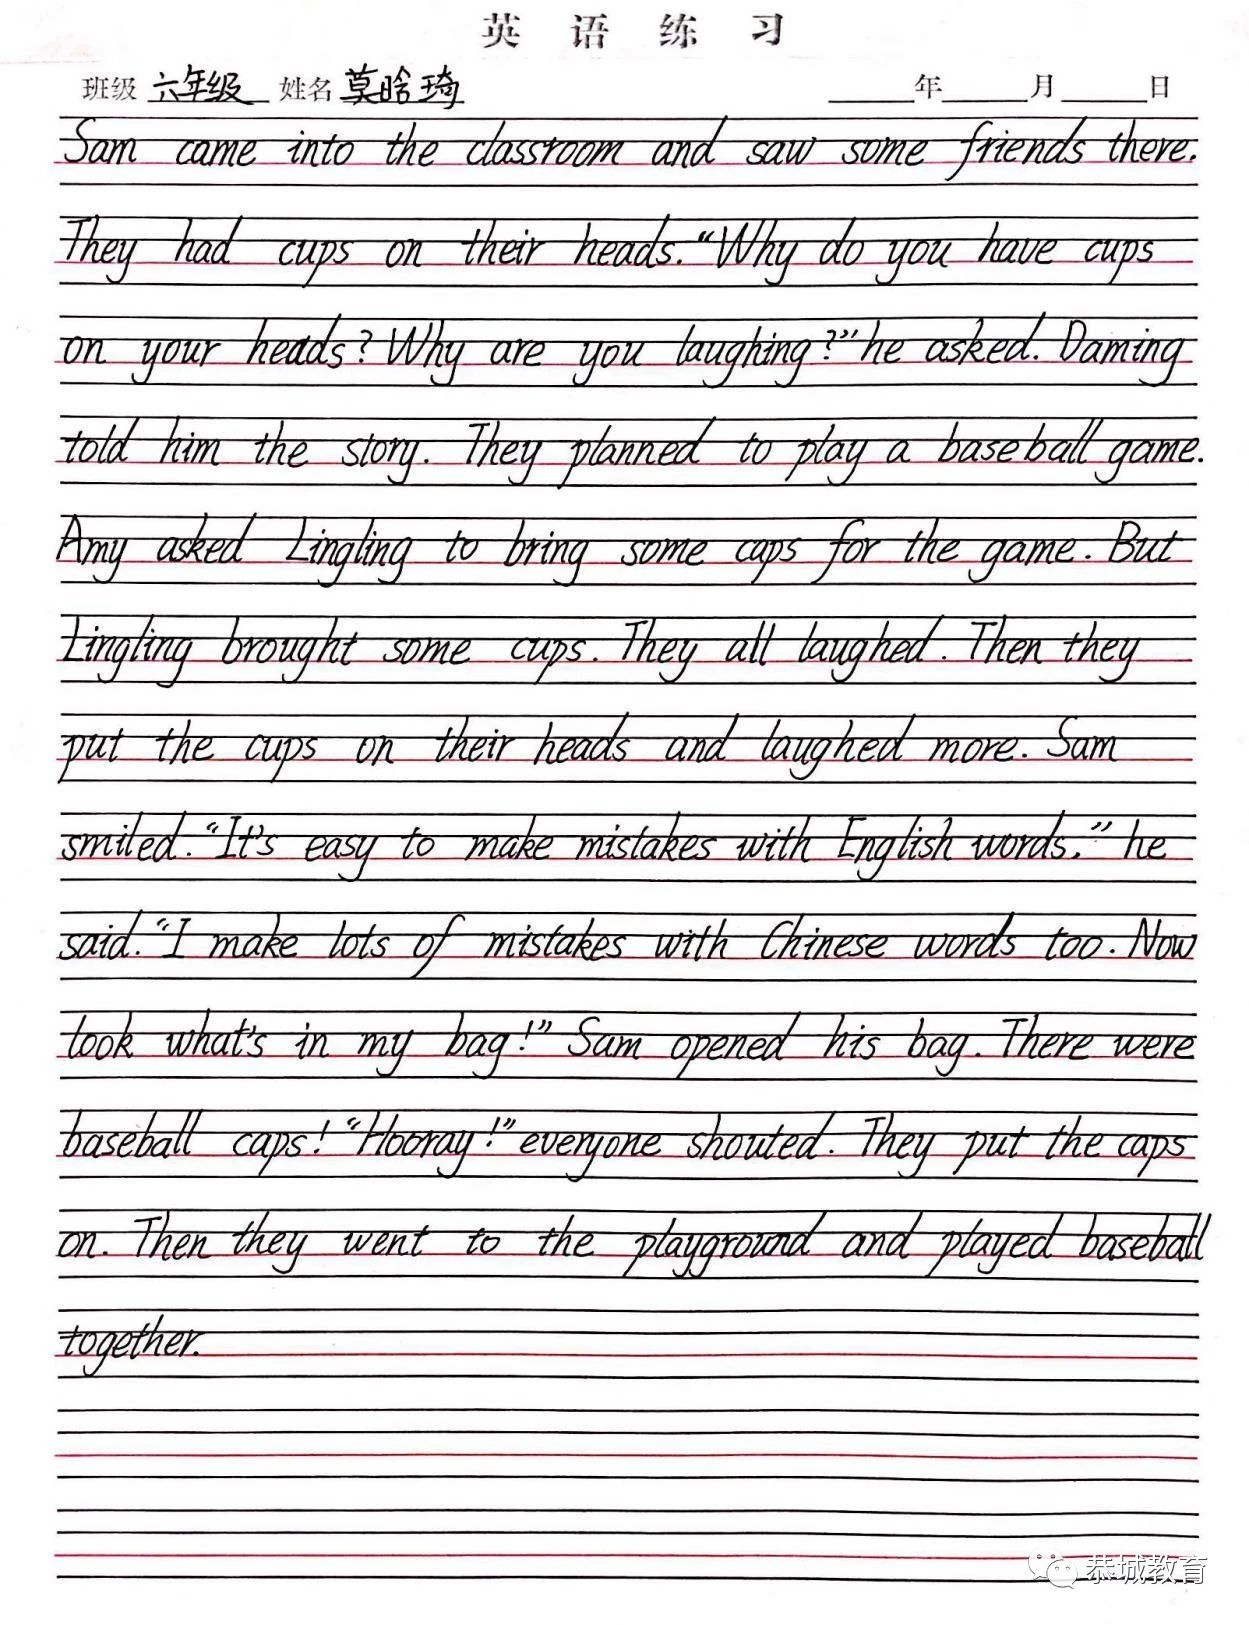 英语练习
班级 六年级 姓名 莫晗琦 年 月 日
Sam came into the classroom and saw some friends there.
They had cups on their heads. "Why do you have cups
on your heads? Why are you laughing?" he asked. Daming
told him the story. They planned to play a baseball game.
Amy asked Lingling to bring some caps for the game. But
Lingling brought some cups. They all laughed. Then they
put the cups on their heads and laughed more. Sam
smiled. "It's easy to make mistakes with English words." he
said. "I make lots of mistakes with Chinese words too. Now
look what's in my bag!" Sam opened his bag. There were
baseball caps! "Hooray!" everyone shouted. They put the caps
on. Then they went to the playground and played baseball
together.
恭城教育